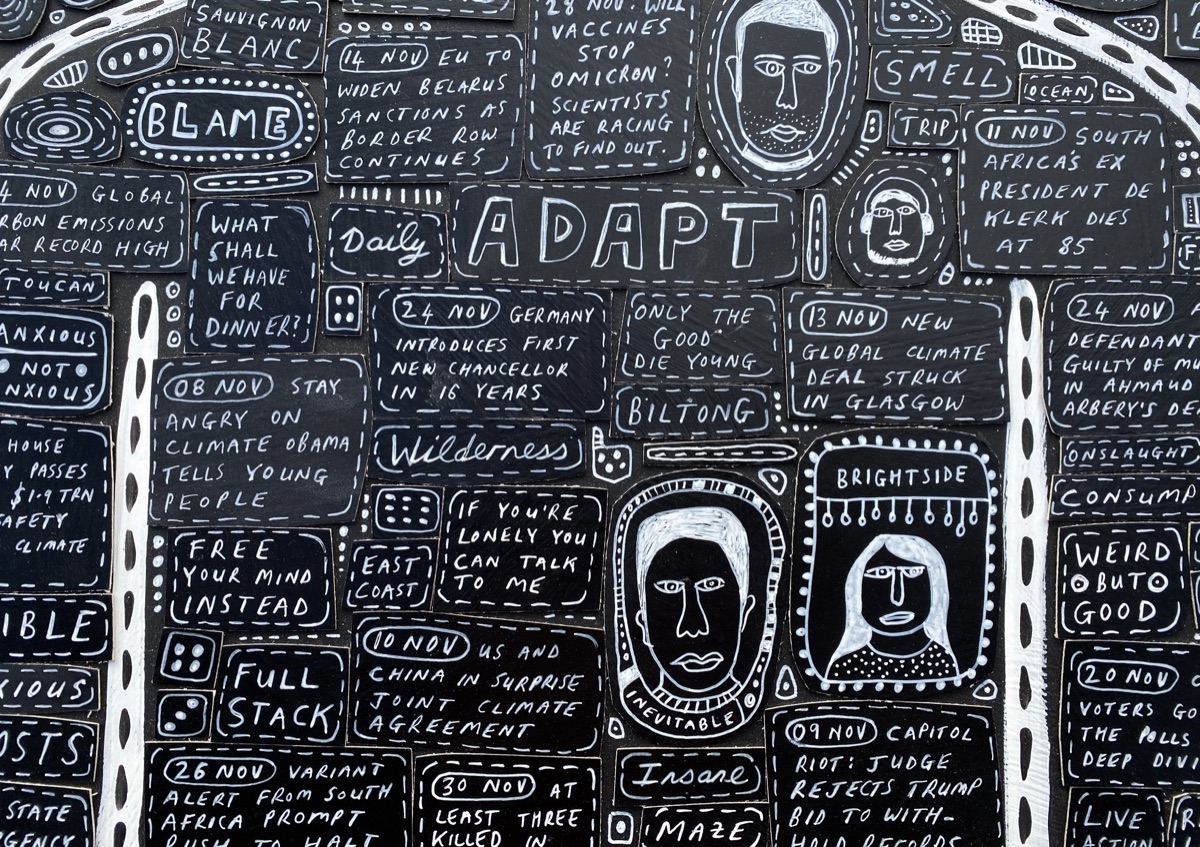 SAUVIGNON
BLANC
14 NOV EU TO
WIDEN BELARUS
SANCTIONS AS
BORDER ROW
CONTINUES
28 NOV: WILL
VACCINES
STOP
OMICRON?
SCIENTISTS
ARE RACING
TO FIND OUT.
SMELL
OCEAN
BLAME
TRIP
11 NOV SOUTH
AFRICA'S EX
PRESIDENT DE
KLERK DIES
AT 85
4 NOV GLOBAL
RBON EMISSIONS
AR RECORD HIGH
WHAT
SHALL
WE HAVE
FOR
DINNER?!
Daily
ADAPT
TOUCAN
ANXIOUS
NOT
NXIOUS
24 NOV GERMANY
INTRODUCES FIRST
NEW CHANCELLOR
IN 16 YEARS
ONLY THE
GOOD
DIE YOUNG
13 NOV NEW
GLOBAL CLIMATE
DEAL STRUCK
IN GLASGOW
24 NOV
DEFENDANT
GUILTY OF M
IN AHMAUD
ARBERY'S DE
08 NOV STAY
ANGRY ON
CLIMATE OBAMA
TELLS YOUNG
PEOPLE
BILTONG
Wilderness
HOUSE
Y PASSES
$1.9 TRN
SAFETY
CLIMATE
ONSLAUGHT
CONSUMP
BRIGHTSIDE
IF YOU'RE
LONELY YOU
CAN TALK
TO ME
FREE
YOUR MIND
INSTEAD
EAST
COAST
WEIRD
BUT
GOOD
IBLE
10 NOV US AND
CHINA IN SURPRISE
JOINT CLIMATE
AGREEMENT
FULL
STACK
XIOUS
INEVITABLE
20 NOV
VOTERS GO
THE POLLS
DEEP DIVI
OSTS
09 NOV CAPITOL
RIOT: JUDGE
REJECTS TRUMP
BID TO WITH-
HOLD RECORDS
26 NOV VARIANT
ALERT FROM SOUTH
AFRICA PROMPT
RUSH TO HALT
30 NOV AT
LEAST THREE
KILLED IN
Insane
MAZE
STATE
RGENCY
LIVE
ACTION